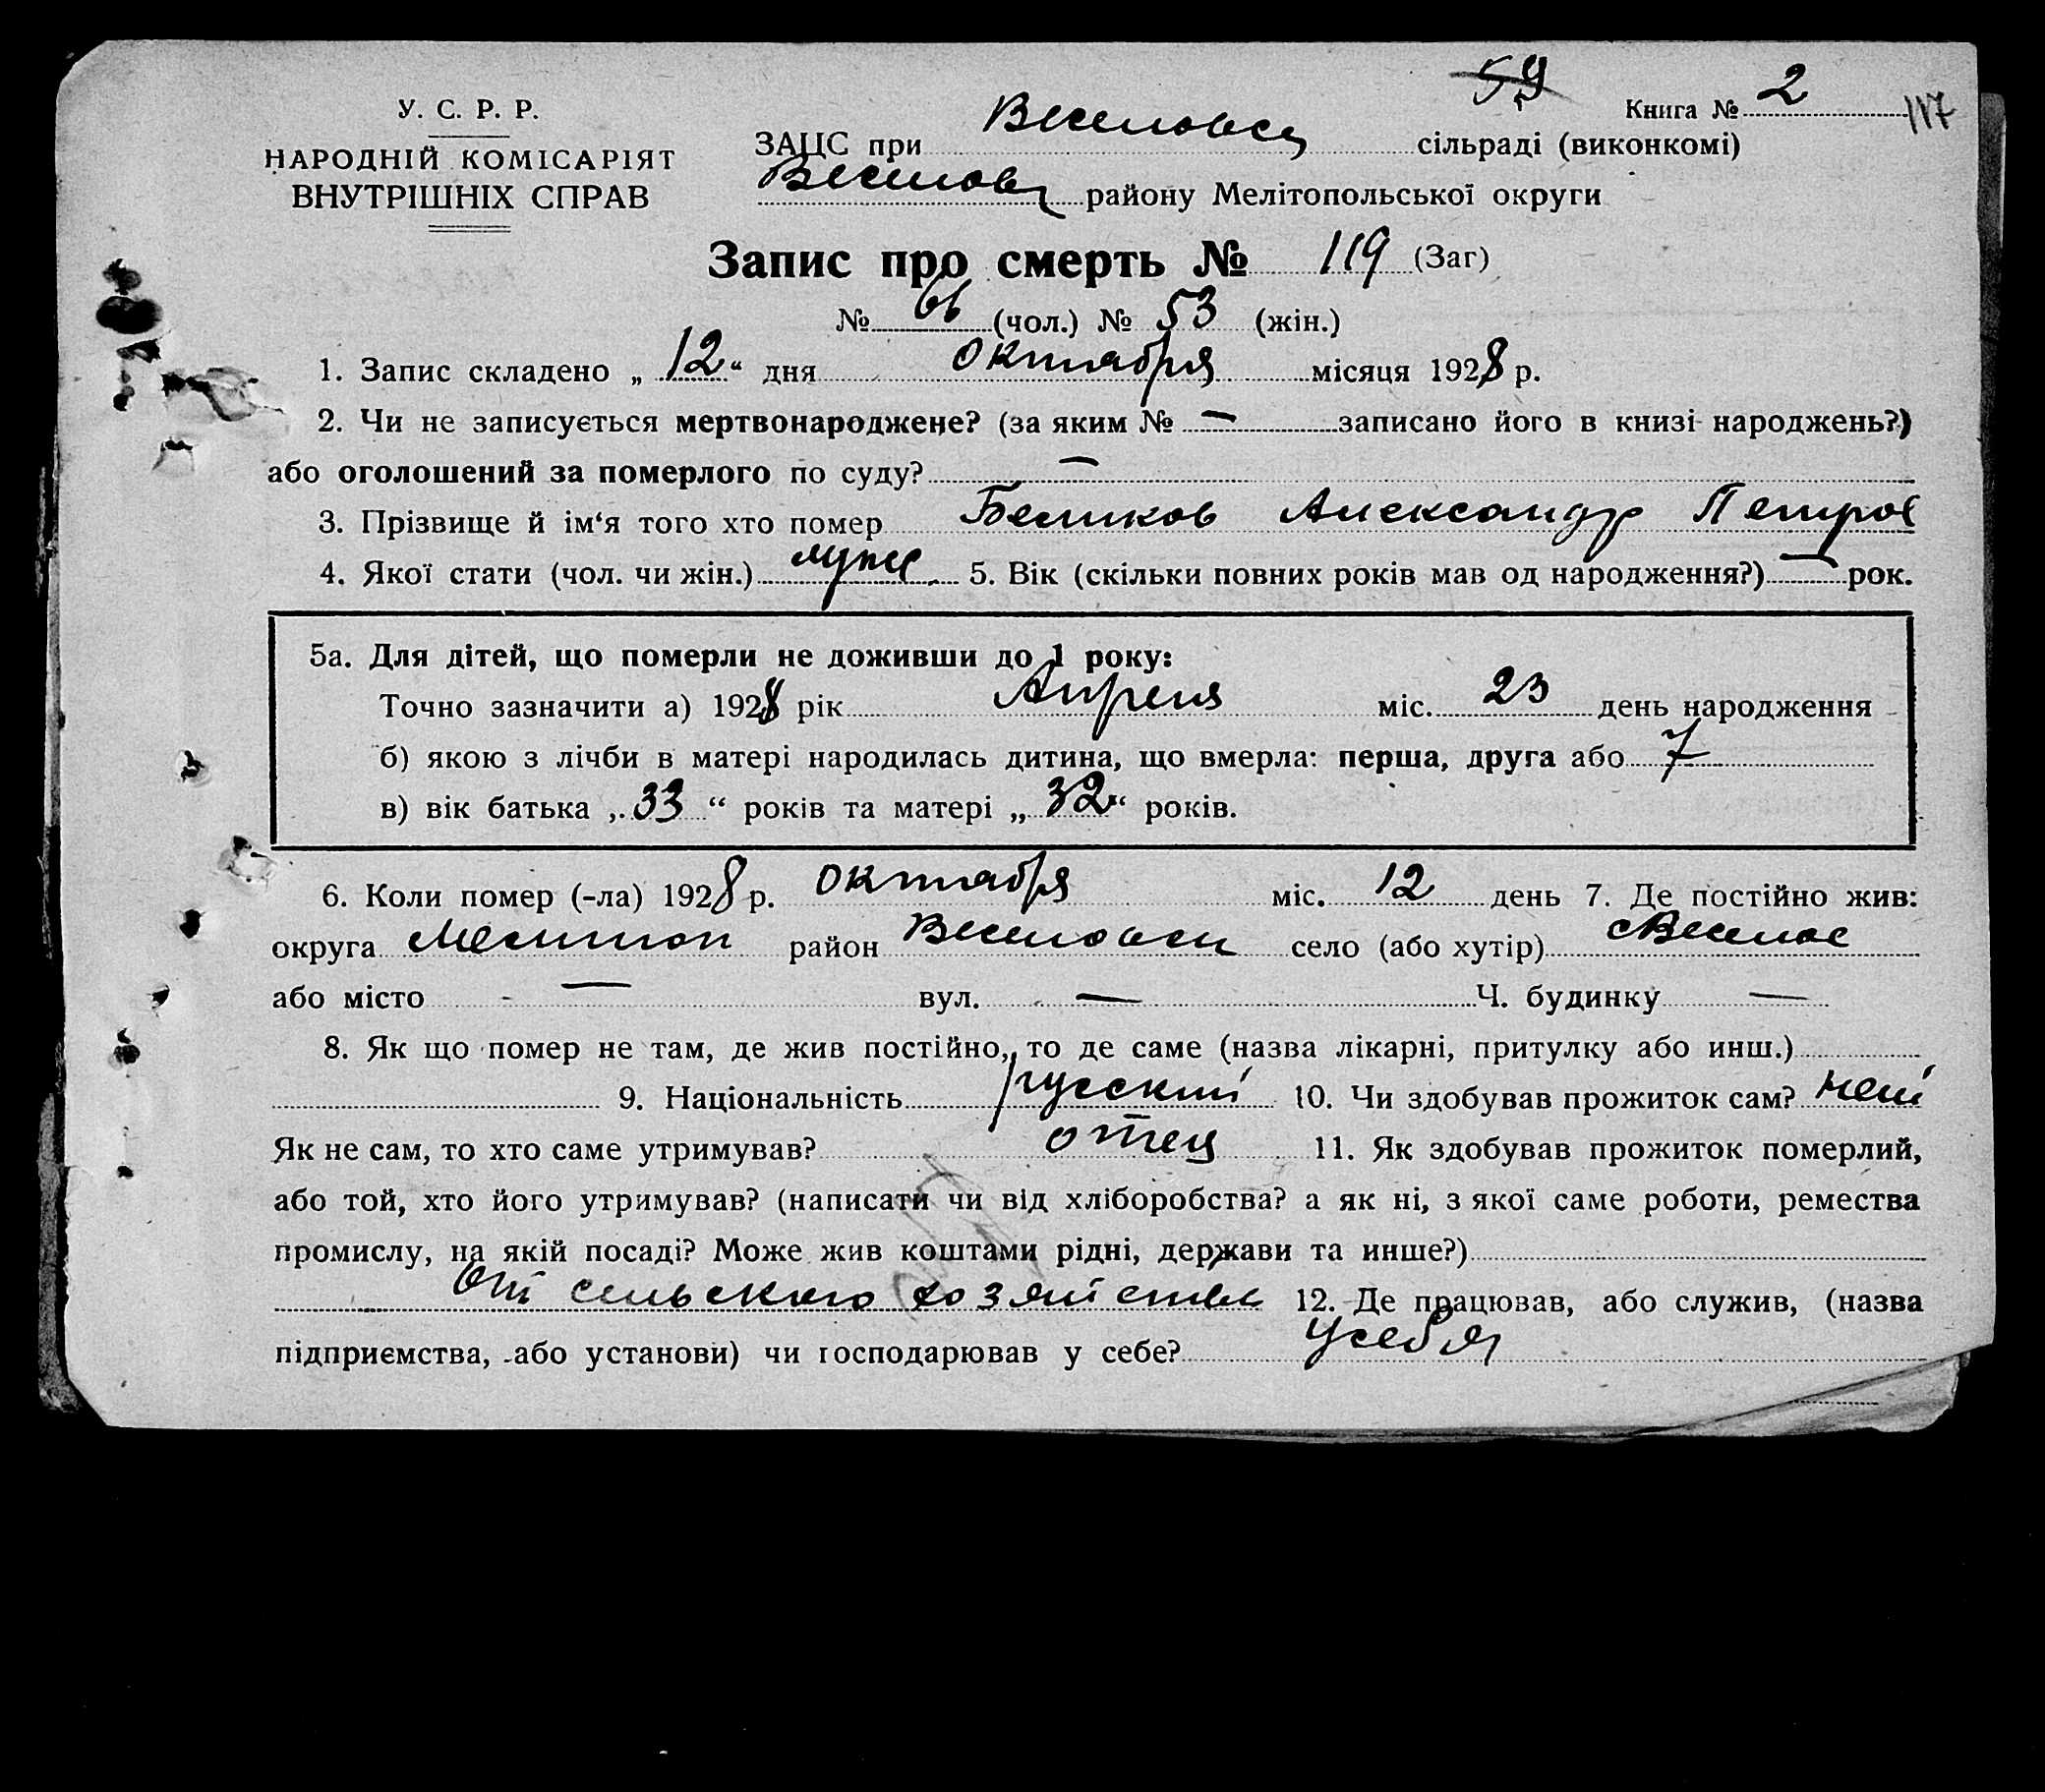 59
У. С. Р. Р.
Книга № 2 117
НАРОДНІЙ КОМІСАРІЯТ
ВНУТРІШНІХ СПРАВ
ЗАЦС при Веселовск сільраді (виконкомі)
Веселов району Мелітопольської округи
Запис про смерть № 119 (Заг)
№ 66 (чол.) № 53 (жін.)
1. Запис складено „ 12 “ дня октября місяця 1928 р.
2. Чи не записується мертвонароджене? (за яким № — записано його в книзі народжень?)
або оголошений за померлого по суду? —
3. Прізвище й ім‘я того хто помер Беликов Александр Петров
4. Якої стати (чол. чи жін.) муже. 5. Вік (скільки повних років мав од народження?) — рок.
5а. Для дітей, що померли не доживши до 1 року:
Точно зазначити а) 1928 рік Апреля міс. 23 день народження
б) якою з лічби в матері народилась дитина, що вмерла: перша, друга або 7
в) вік батька „ 33 “ років та матері „ 32 “ років.
6. Коли помер (-ла) 1928 р. октября міс. 12 день 7. Де постійно жив:
округа Мелитоп район Веселовск село (або хутір) с Веселое
або місто — вул. — Ч. будинку —
8. Як що помер не там, де жив постійно, то де саме (назва лікарні, притулку або инш.)
9. Національність русский 10. Чи здобував прожиток сам? нет
Як не сам, то хто саме утримував? отец 11. Як здобував прожиток померлий,
або той, хто його утримував? (написати чи від хліборобства? а як ні, з якої саме роботи, ремества
промислу, на якій посаді? Може жив коштами рідні, держави та инше?)
От сельского хозяйства 12. Де працював, або служив, (назва
підприємства, або установи) чи господарював у себе? у себя